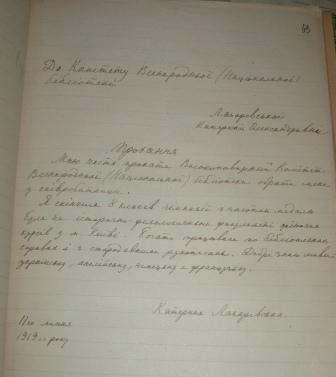 63
До Комітету Всенародньої (Національної)
бібліотеки
Лазаревської
Катерини Олександрівни
Прохання
Маю честь прохати Високоповажний Комітет
Всенародньої (Національної) бібліотеки обрати мене
у співробітниці.
Я скінчила 8 класів гімназії з золотою медаллю
була на історично-філологічному факультеті жіночих
курсів у м. Київі. Богато працювала по бібліотечних
справах й з стародавніми рукописями. Добре знаю мови:
українську, англійську, німецьку й французьку.
Катерина Лазаревська.
11го липня
1919го року